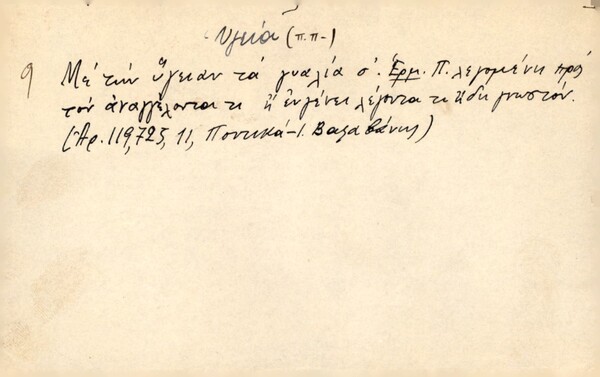 Ὑγεία (π.π-)
9 Μὲ τὴν ὕγειαν τὰ γυαλία σ'. Ἑρμ. Π. λεγομένη πρὸς
τὸν ἀναγγέλοντα τι ἢ ἐν γένει λέγοντα τι ἤδη γνωστόν.
(Ἀρ. 119,725, 11, Ποντικά-Ι. Βαζαβάνης)